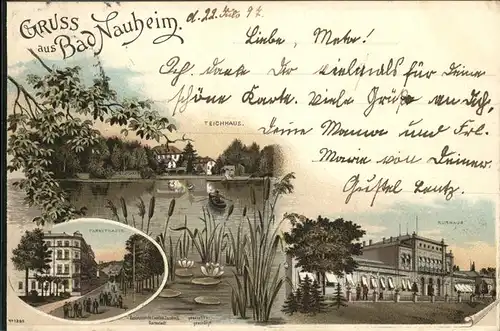 GRUSS
aus Bad Nauheim.
d. 22. Juli 97.
Liebe, Meta!
Ich danke Dir vielmals für Deine
schöne Karte. Viele Grüße an Dich,
Deine Mama und Frl.
Marie von Deiner
Gustel Lautz.
TEICHHAUS.
KURHAUS
PARKSTRASSE